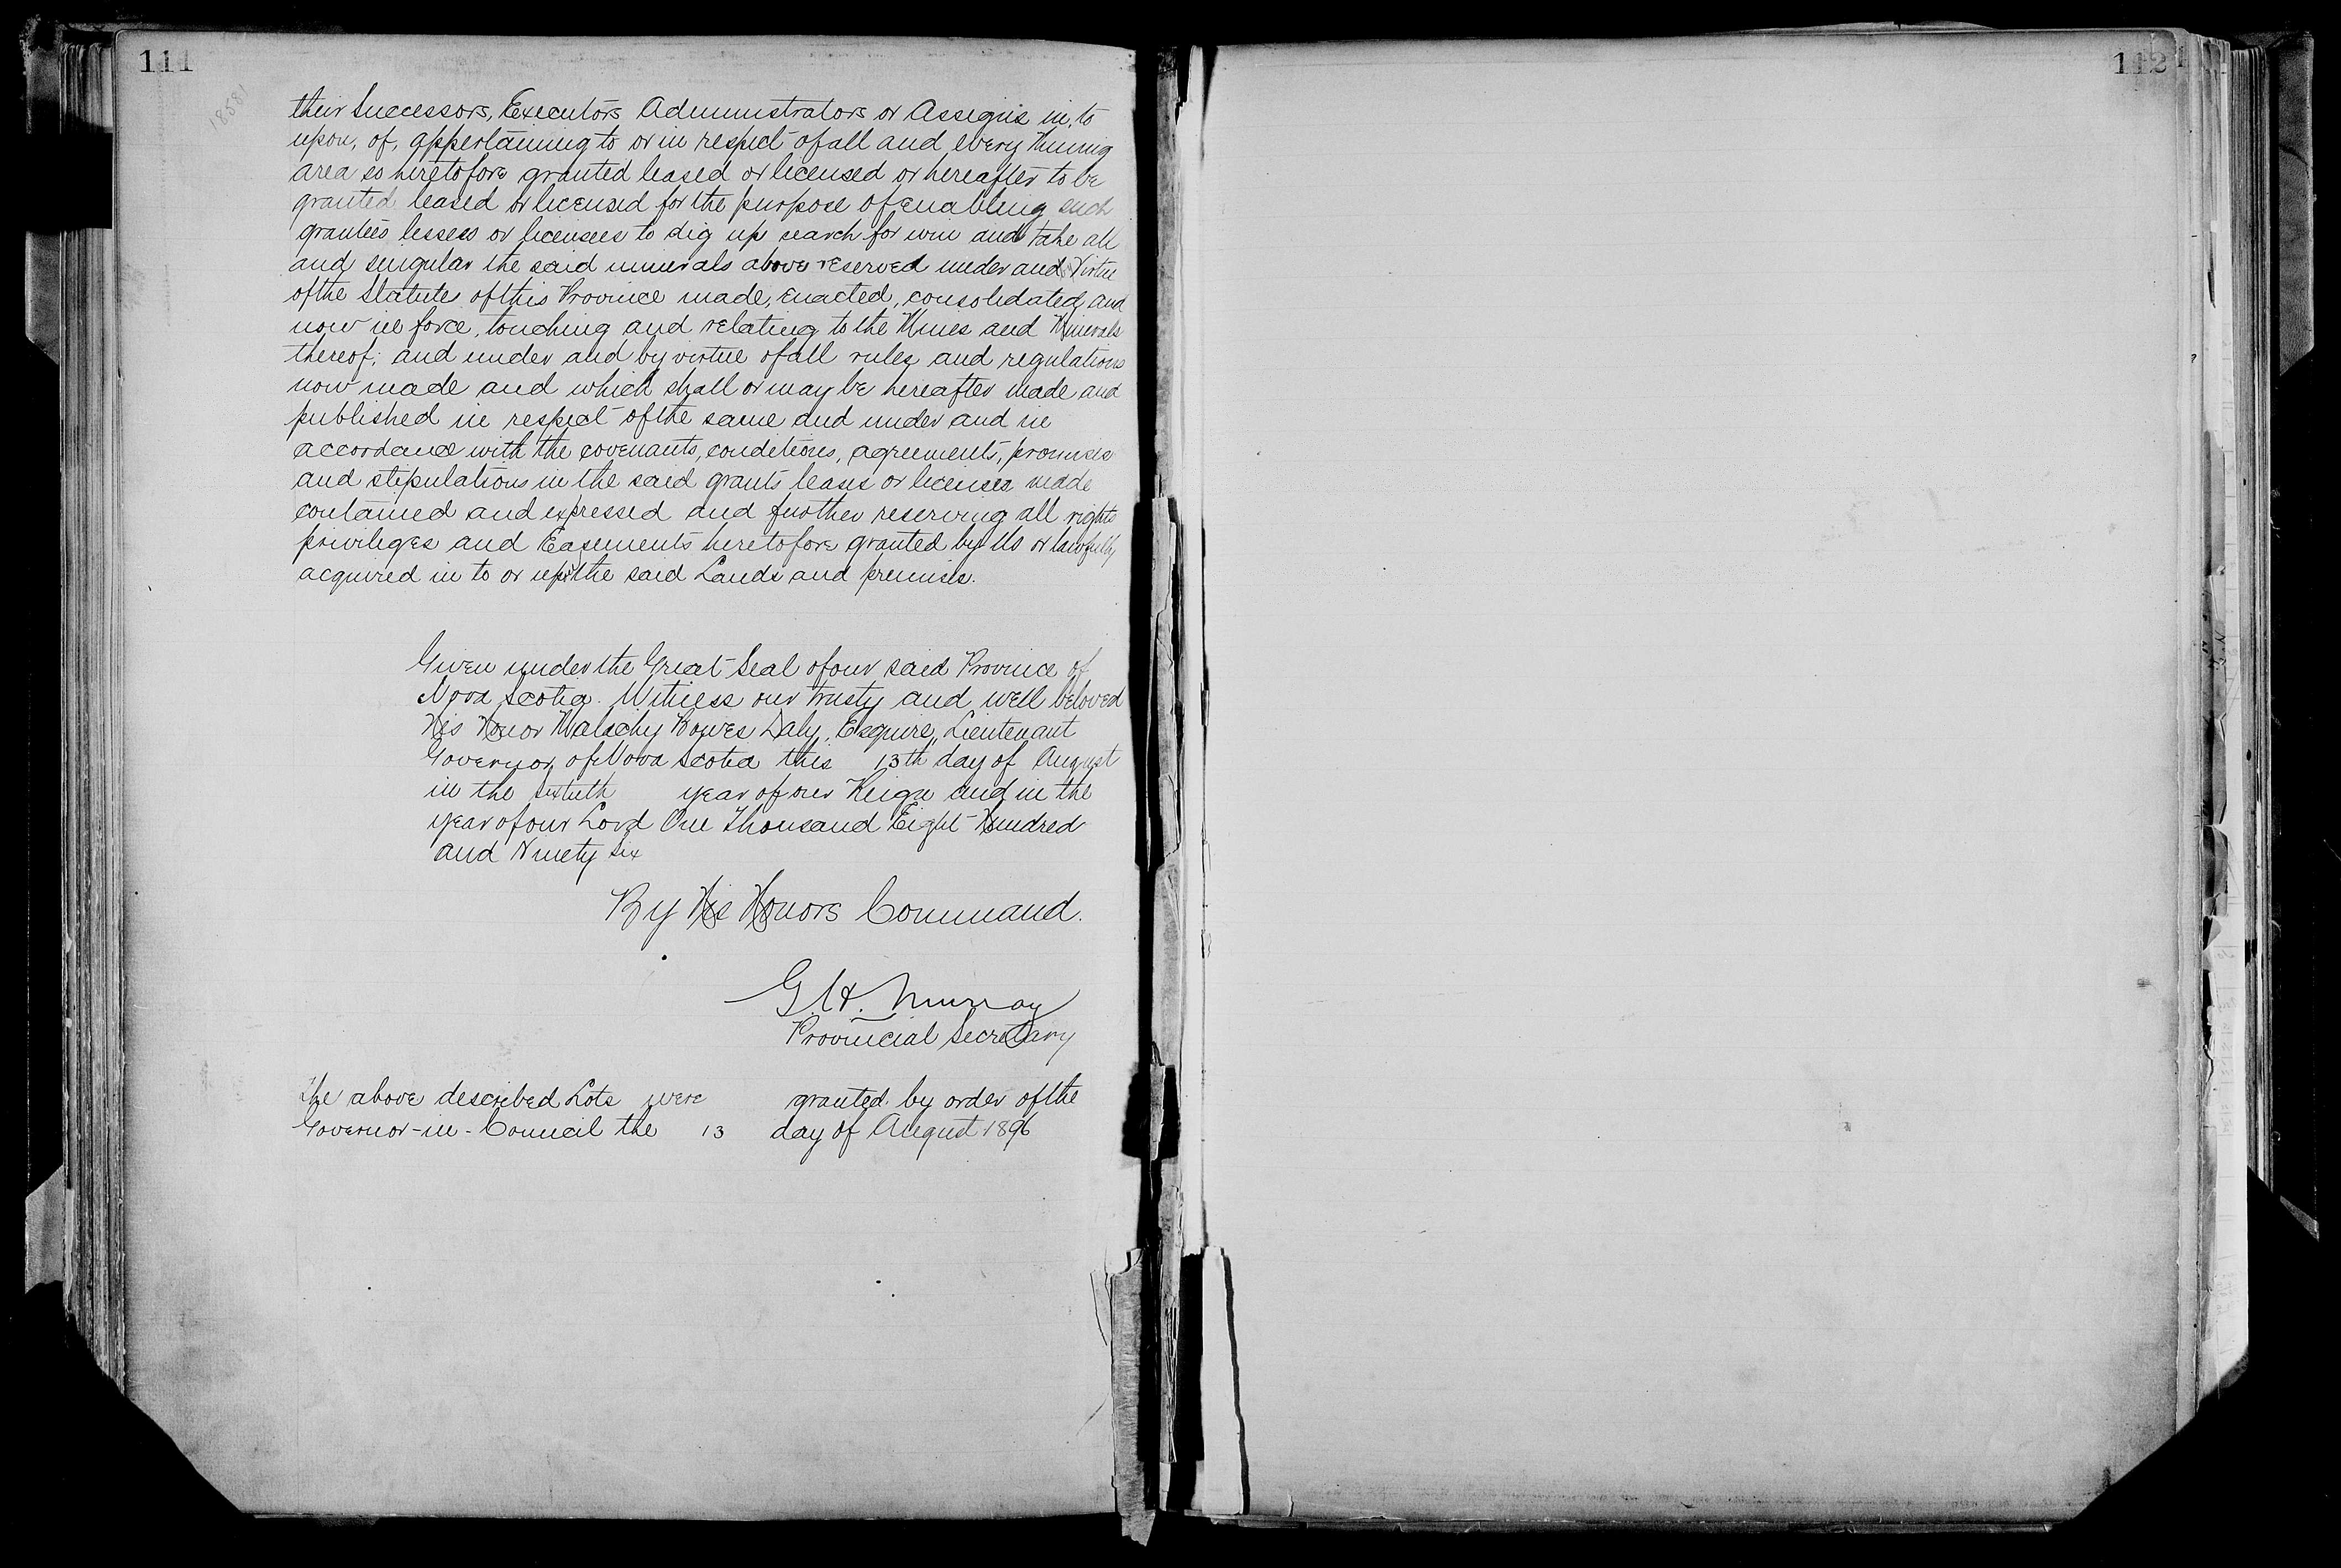 111
18581
their Successors, Executors Administrators or Assigns in, to
upon, of, appertaining to or in respect of all and every Mining
area so heretofore granted leased or licensed or hereafter to be
granted leased or licensed for the purpose of enabling such
grantees lessees or licensees to dig up search for win and take all
and singular the said minerals above reserved under and Virtue
of the Statutes of this Province made, enacted, consolidated, and
now in force, touching and relating to the Mines and Minerals
thereof; and under and by virtue of all rules and regulations
now made and which shall or may be hereafter made and
published in respect of the same and under and in
accordance with the covenants, conditions, agreements, promises
and stipulations in the said grants leases or licenses made
contained and expressed and further reserving all rights
privileges and Easements heretofore granted by Us or lawfully
acquired in to or upon the said Lands and premises.
Given under the Great Seal of our said Province of
Nova Scotia. Witness our trusty and well beloved
His Honor Malachy Bowes Daly, Esquire, Lieutenant
Governor of Nova Scotia this 13th day of August
in the sixtieth year of our Reign and in the
year of our Lord One Thousand Eight Hundred
and Ninety six
By His Honors Command.
G. H. Murray
Provincial Secretary
The above described Lots were granted by order of the
Governor-in-Council the 13 day of August 1896
112